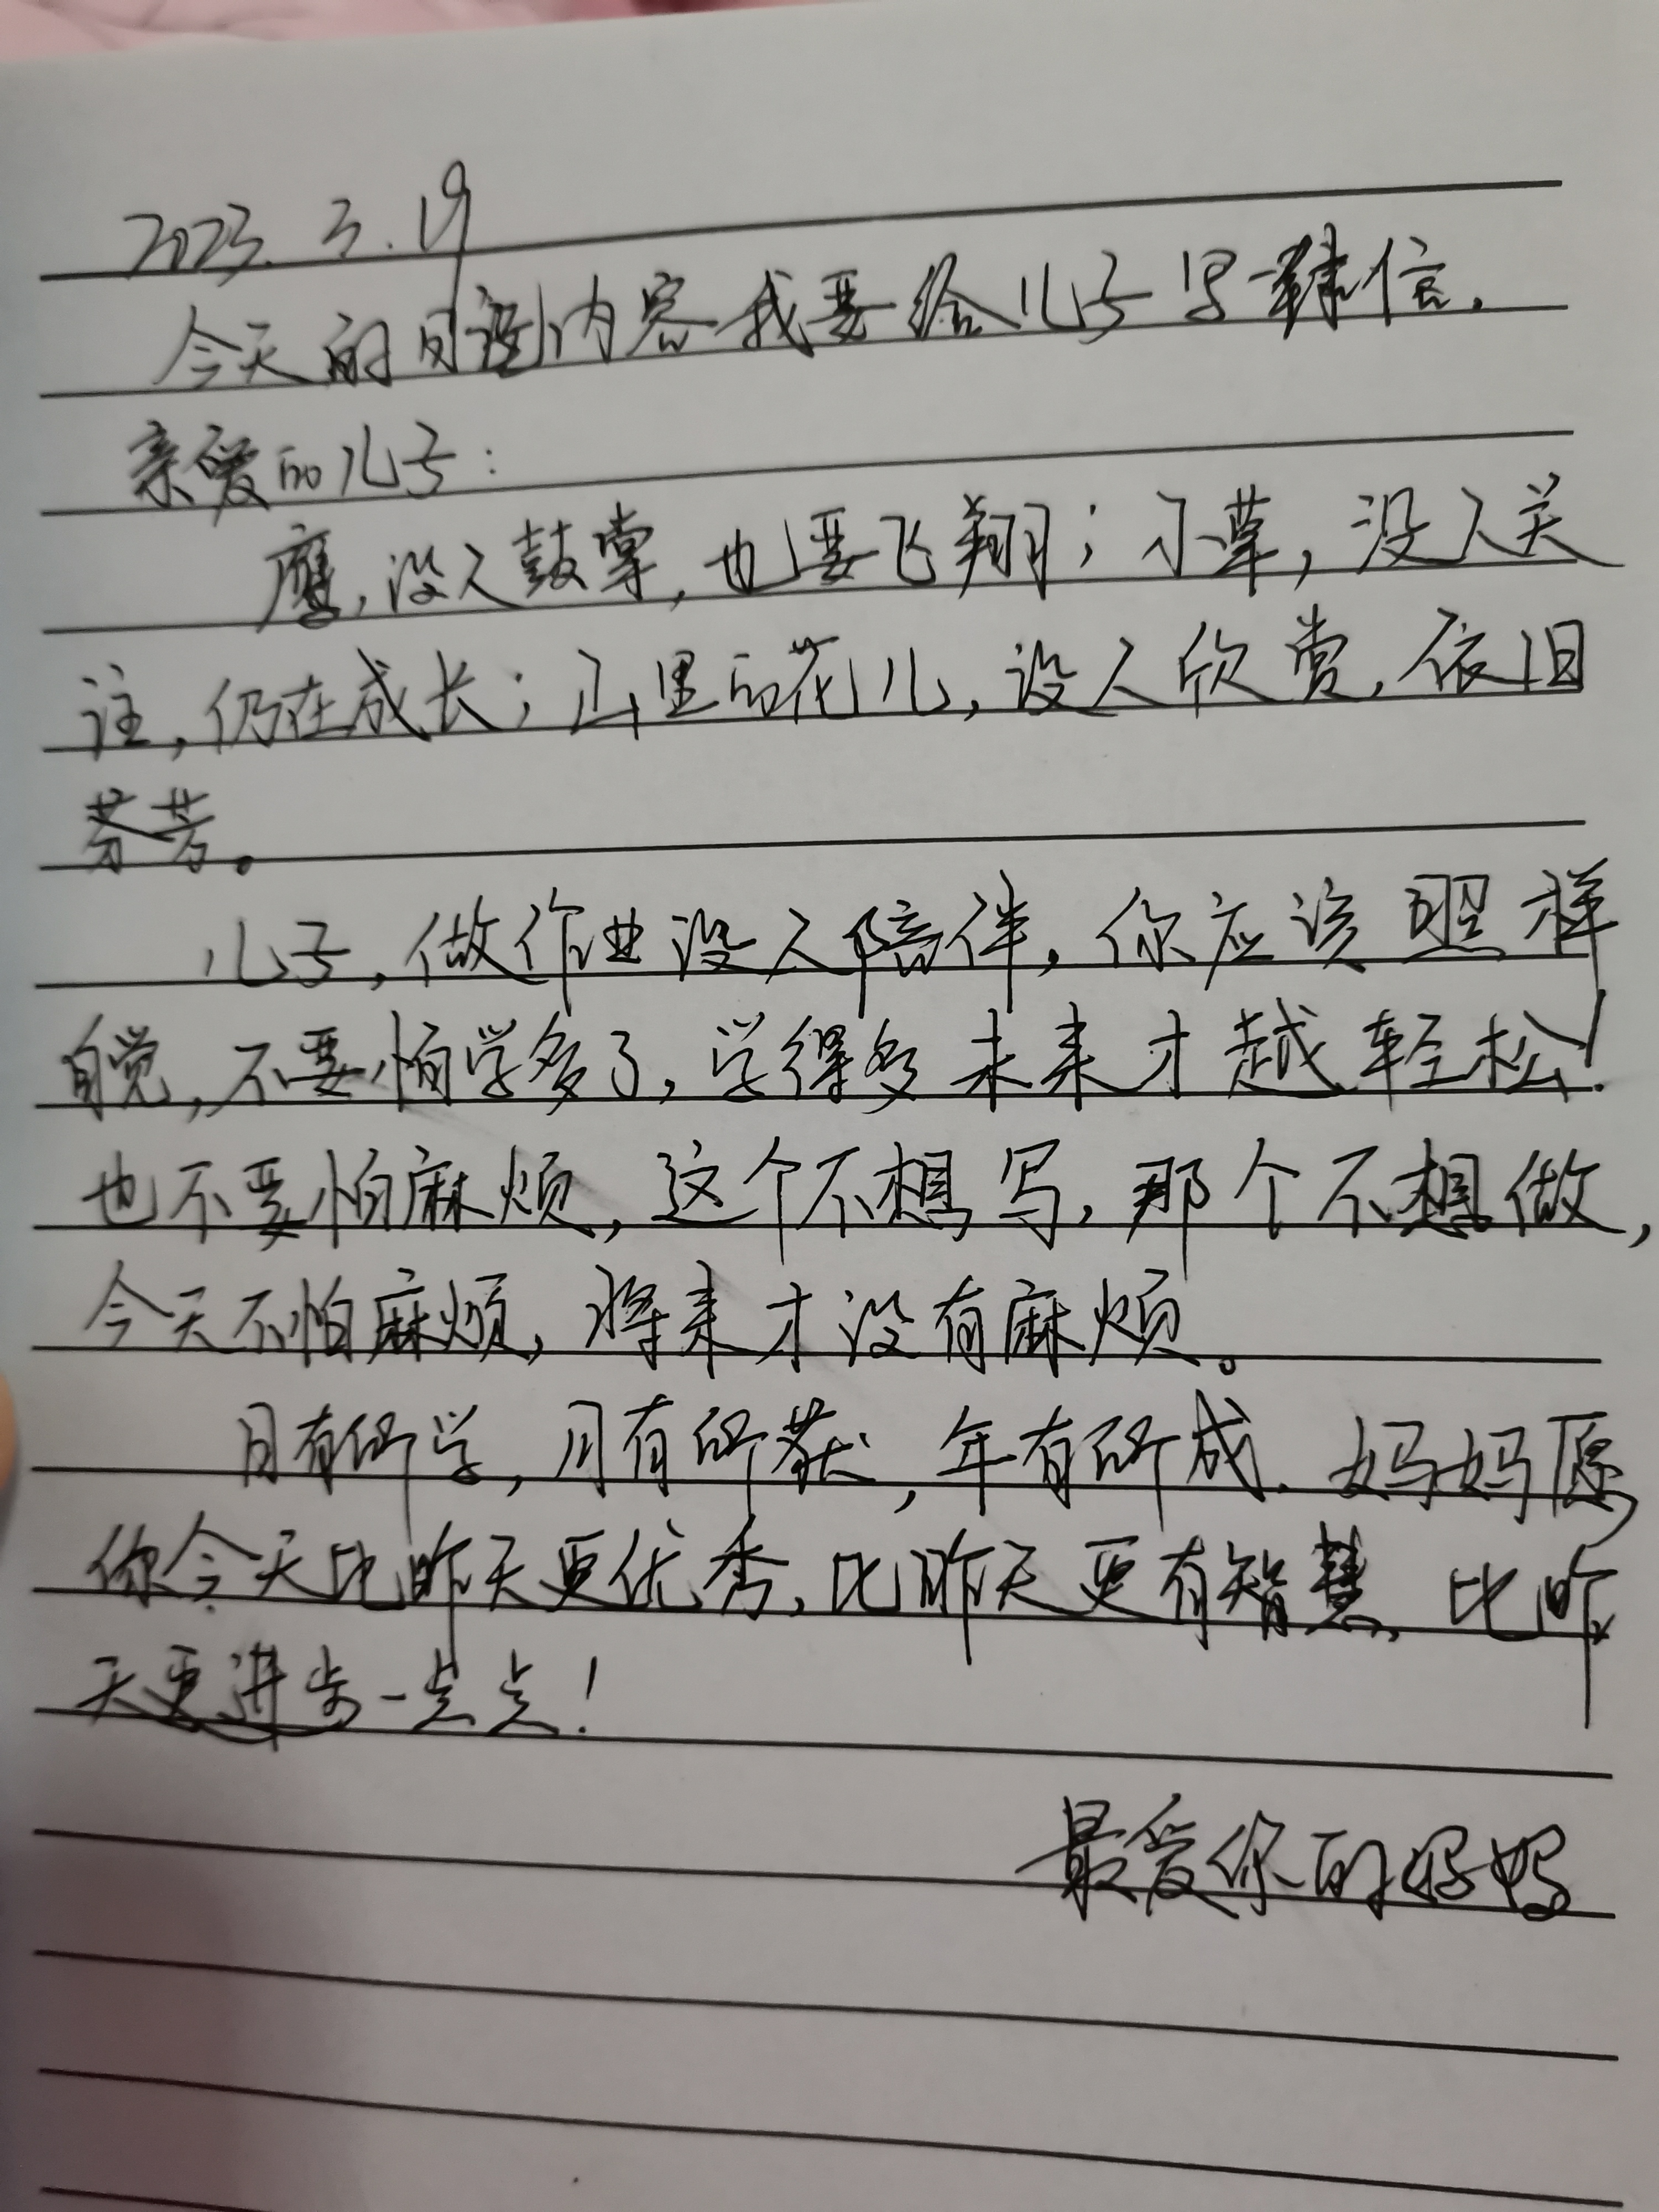 2023.3.19
今天的日记内容我要给儿子写一封信.
亲爱的儿子:
鹰,没人鼓掌,也要飞翔;小草,没人关
注,仍在成长;山里的花儿,没人欣赏,依旧
芬芳。
儿子,做作业没人陪伴,你应该照样
自觉,不要怕学多了,学得多未来才越轻松!
也不要怕麻烦,这个不想写,那个不想做,
今天不怕麻烦,将来才没有麻烦。
日有所学,月有所获,年有所成.妈妈愿
你今天比昨天更优秀,比昨天更有智慧,比昨
天更进步一点点!
最爱你的妈妈